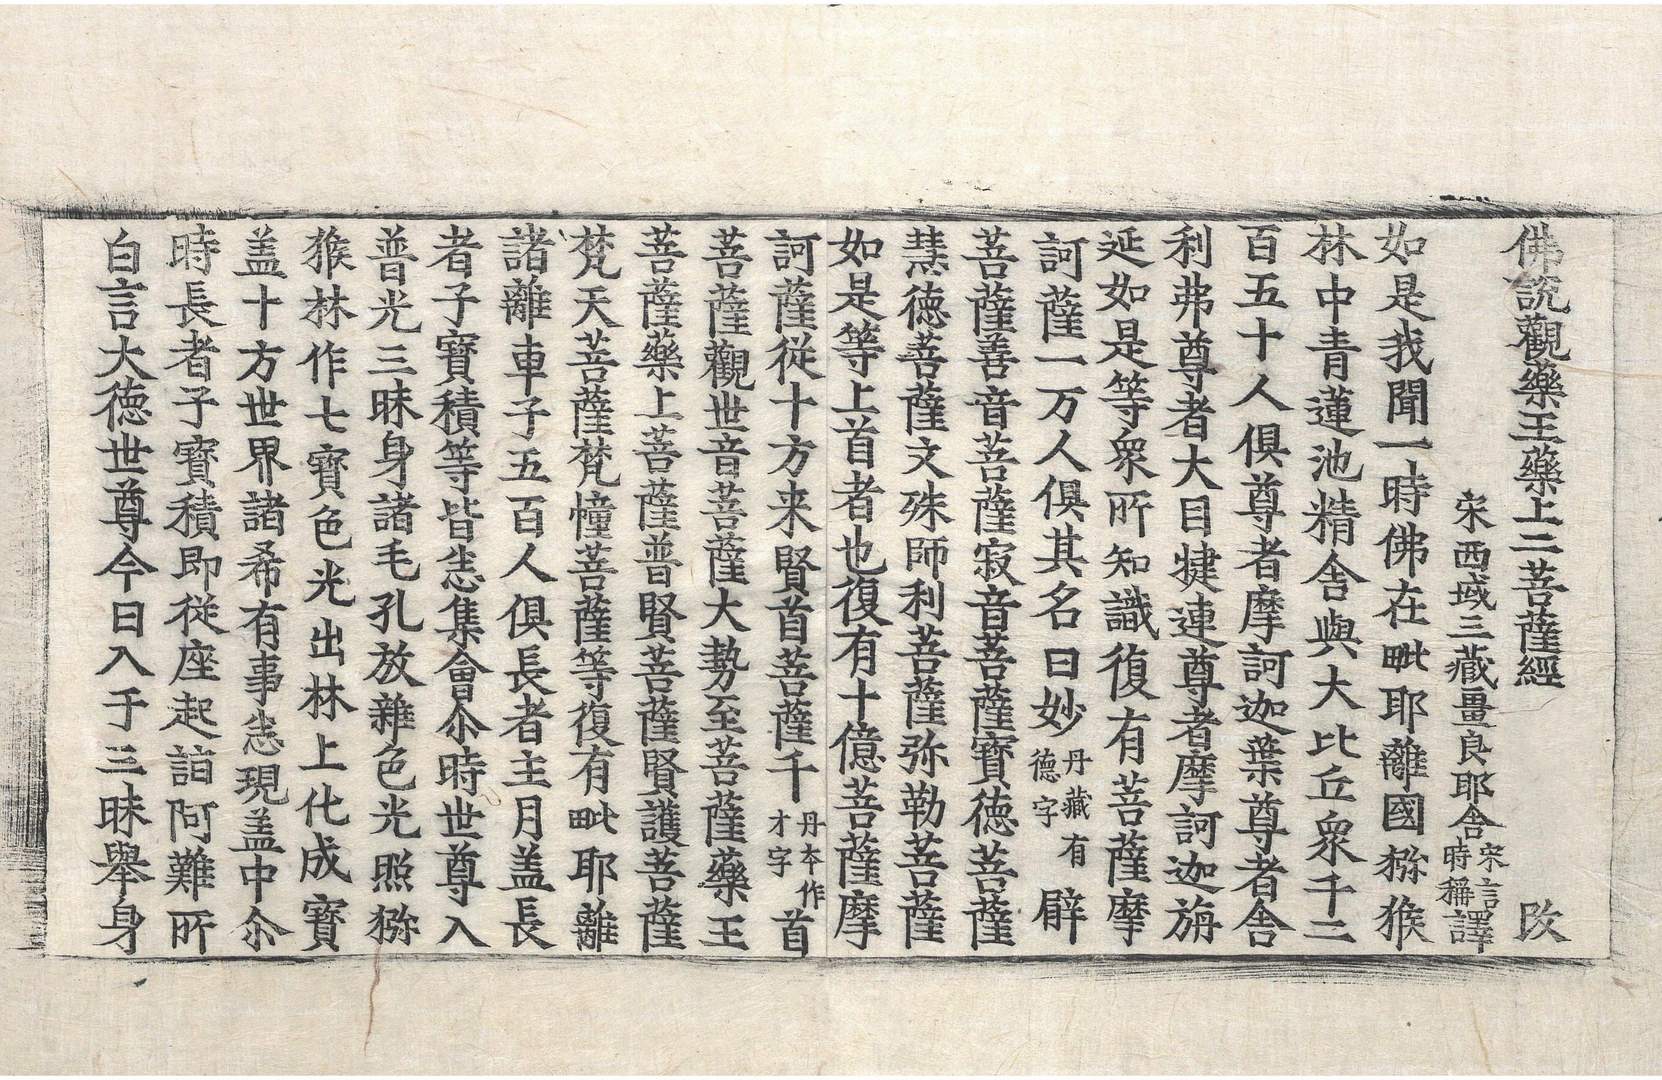 佛說觀藥王藥上二菩薩經　改
宋西域三藏畺良耶舍宋言時稱譯
如是我聞一時佛在毗耶離國獼猴
林中青蓮池精舍與大比丘衆千二
百五十人俱尊者摩訶迦葉尊者舍
利弗尊者大目犍連尊者摩訶迦旃
延如是等衆所知識復有菩薩摩
訶薩一万人俱其名曰妙丹藏有德字辟
菩薩善音菩薩寂音菩薩寶德菩薩
慧德菩薩文殊師利菩薩弥勒菩薩
如是等上首者也復有十億菩薩摩
訶薩從十方来賢首菩薩千丹本作才字首
菩薩觀世音菩薩大勢至菩薩藥王
菩薩藥上菩薩普賢菩薩賢護菩薩
梵天菩薩梵幢菩薩等復有毗耶離
諸離車子五百人俱長者主月盖長
者子寶積等皆悉集會尒時世尊入
普光三昧身諸毛孔放雜色光照獼
猴林作七寶色光出林上化成寶
盖十方世界諸希有事悉現盖中尒
時長者子寶積即從座起詣阿難所
白言大德世尊今日入于三昧舉身